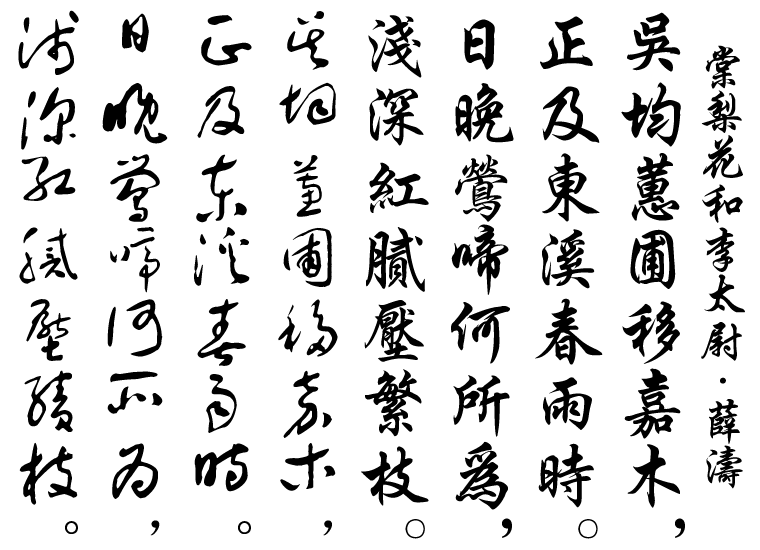 棠梨花和李太尉·薛濤
吳均蕙圃移嘉木，
正及東溪春雨時。
日晚鶯啼何所為，
淺深紅膩壓繁枝。
吳均蕙圃移嘉木，
正及東溪春雨時。
日晚鶯啼何所為，
淺深紅膩壓繁枝。